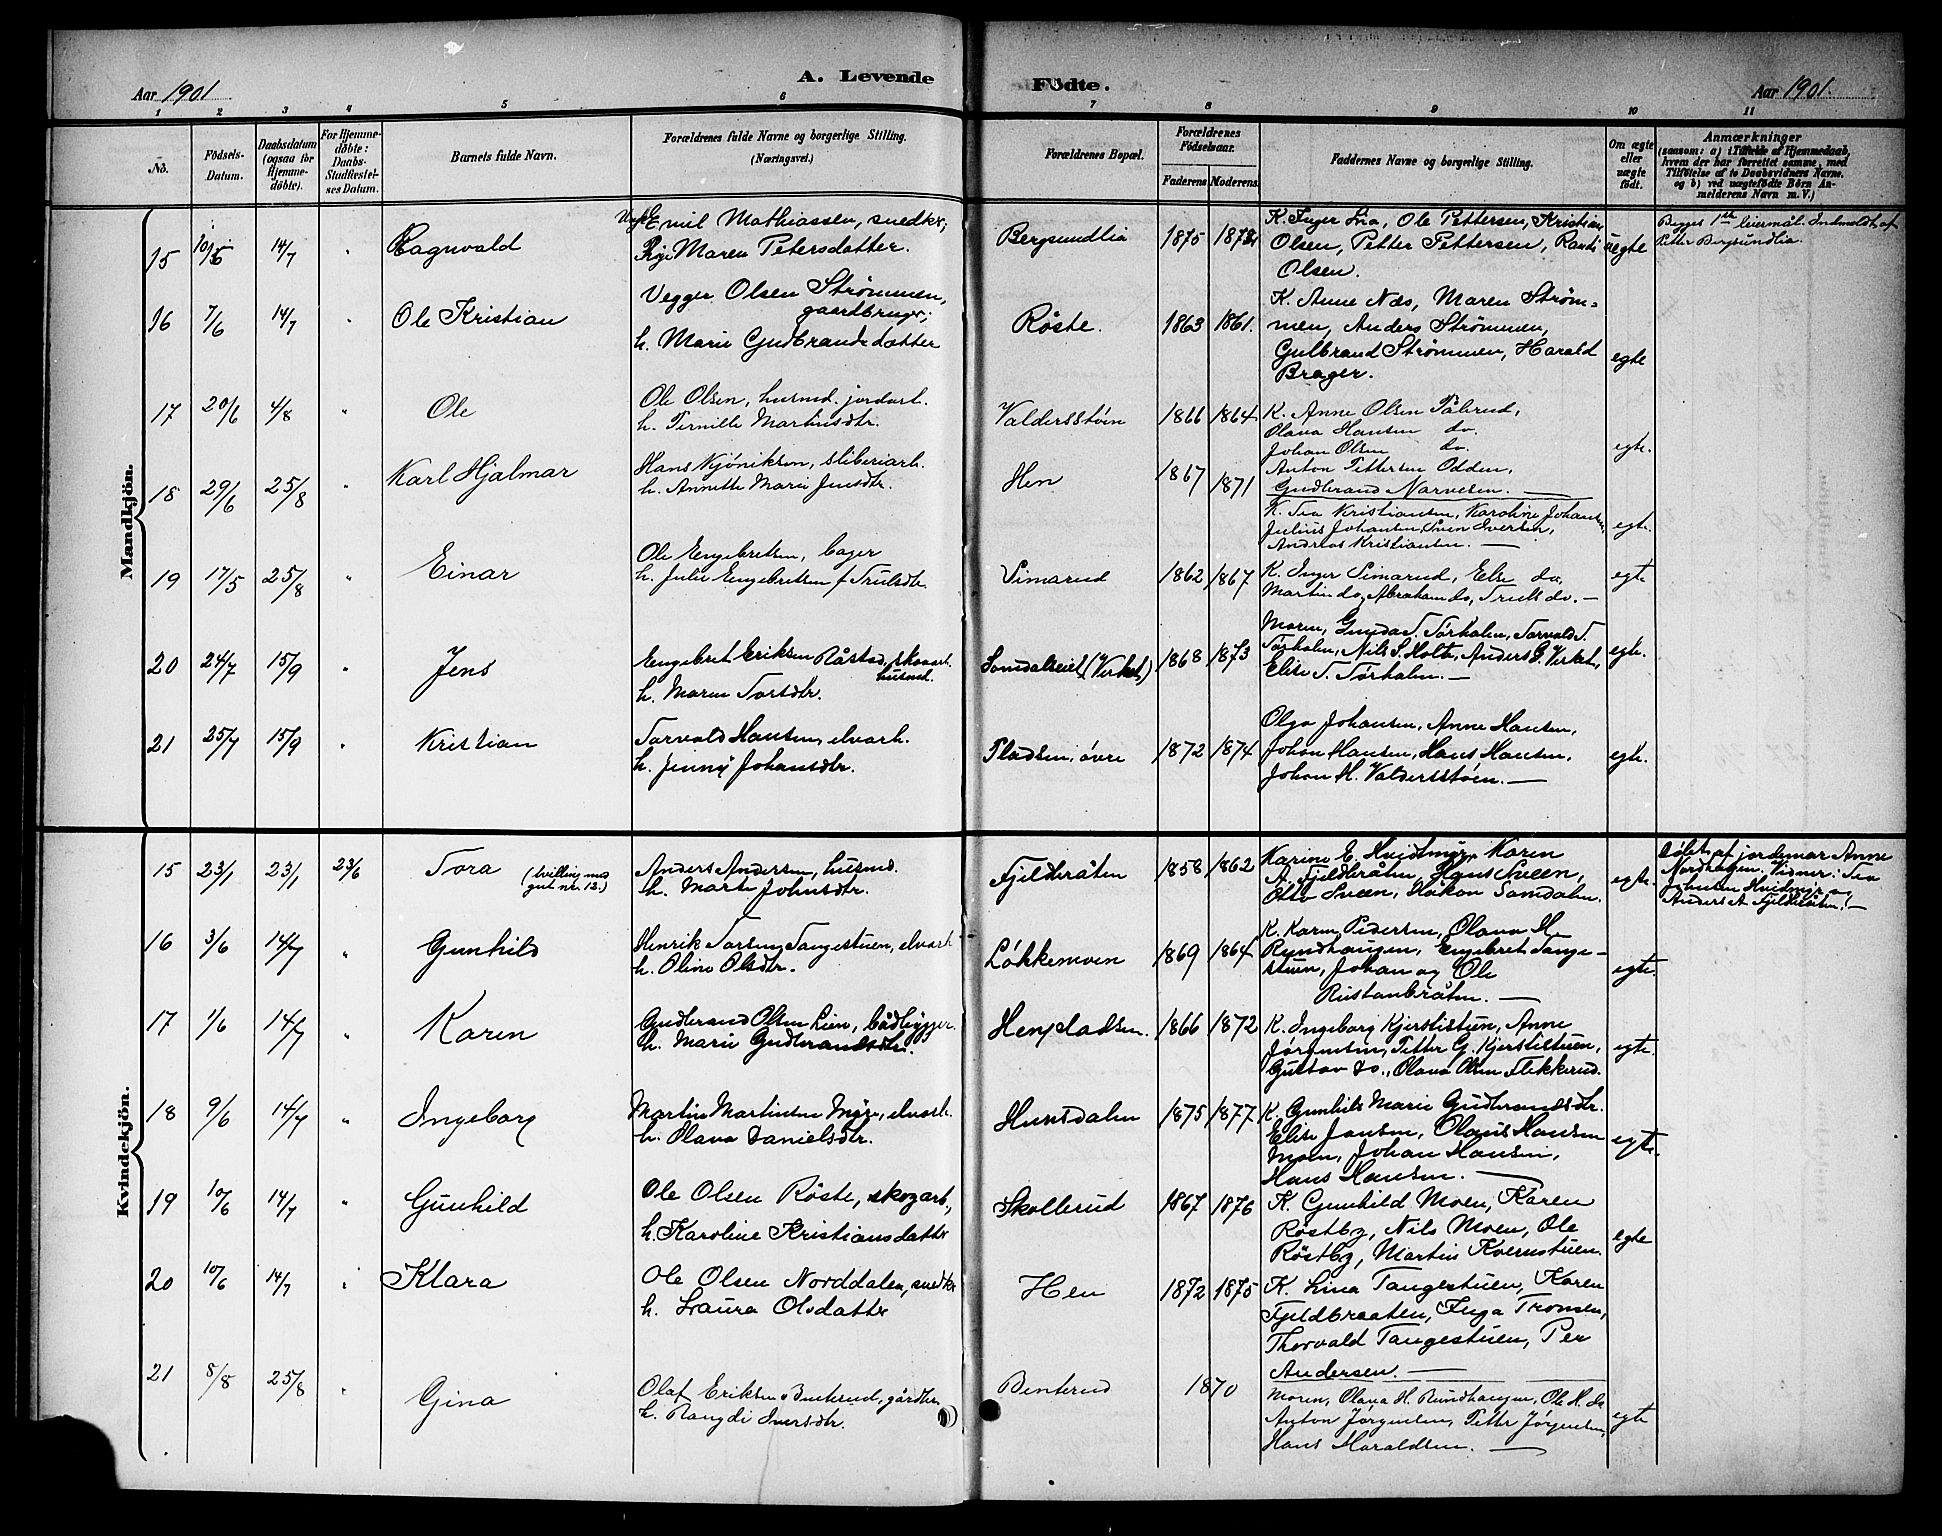 A. Levende Födte.
Aar 1901
Aar 1901.
1 2 3 4 5 6 7 8 9 10 11
No.
Födsels-Datum.
Daabsdatum (ogsaa for Hjemmedöbte).
For Hjemmedöbte: Daabs-Stadfæstelses Datum.
Barnets fulde Navn.
Forældrenes fulde Navne og borgerlige Stilling. (Næringsvei.)
Forældrenes Bopæl.
Forældrenes Födselsaar.
Faderens. Moderens.
Faddernes Navne og borgerlige Stilling.
Om ægte eller uægte födt.
Anmærkninger
(saasom: a) i Tilfælde af Hjemmedaab, hvem der har forrettet samme, med Tilföielse af to Daabsvidners Navne. og b) ved uægtefödte Börn Anmelderens Navn m. V.)
Mandkjön.
15 10/5 14/7 " Ragnvald
Emil Mathiassen, snedkr,
Pige Maren Petersdatter.
Bergsundlia 1875 1878
K. Inger Lia, Ole Pettersen, Kristian
Olsen, Petter Pettersen, Randi
Olsen.
uegte
Begges 1ste leiermål. Indmeldt af
Petter Bergsundlia.
16 7/6 14/7 " Ole Kristian
Vegger Olsen Strömmen,
gaardbruger,
h. Marie Gudbrandsdatter
Röste. 1863 1861.
K. Anne Næs, Maren Ström=
men, Anders Strömmen,
Gulbrand Strömmen, Harald
Brager.
egte
17 20/6 4/8 " Ole
Ole Olsen, husmd. jordarb.
h. Pernille Martinsdtr.
Valdersstöen 1866 1864.
K. Anne Olsen Pålerud,
Olava Hansen do.
Johan Olsen do.
Anton Pettersen Odden,
Gudbrand Narvesen.
egte.
18 29/6 25/8 " Karl Hjalmar
Hans Kjöniksen, sliberiarb.
h. Annette Marie Jensdtr.
Hen 1867 1871
K. Tea Kristiansen, Karoline Johansen,
Julius Johansen, Sven Iversen,
Andreas Kristiansen.
egte.
19 17/5 25/8 " Einar
Ole Engebretsen, bager
h. Julie Engebretsen f. Trulsdtr
Simarud 1862 1867
K. Inger Simarud, Else do,
Martin do, Abraham do, Truls do.
egte
20 24/7 15/9 " Jens
Engebret Eriksen Råstad, skovarb.
husmd.
h. Maren Torsdtr.
Somdalseiet (Virket) 1868 1873
Moren, Gunda T. Törhalm, Torvald T.
Törhalm, Nils S. Holte, Anders G. Virket,
Elise T. Törhalm.
egte.
21 25/7 15/9 " Kristian
Torvald Hansen, elvarb.
h. Jenny Johansdtr.
Pladsen, övre 1872 1874
Olga Johansen, Anne Hansen,
Johan Hansen, Hans Hansen,
Johan H. Valdersstöen.
egte.
Kvindekjön.
15 23/1 23/1 23/6 Tora (tvilling med
gut nr. 12.)
Anders Andersen, husmd.
h. Marte Johnsdtr.
Fjeldbråten 1858 1862
Karine E. Hvidmyr, Karen
A. Fjeldbråten, Hans Sveen,
Otto Sveen, Håkon Somdalen.
egte.
Döbt af jordemor Anne
Nordhagen. Vidner: Tea
Johnsen Hvidmyr og
Anders A. Fjeldbråten.
16 3/6 14/7 " Gunhild
Henrik Torsen Tangestuen, elvarb
h. Oline Olsdtr.
Lökkemoen 1869 1864
K. Karen Pedersen, Olava H.
Rundhaugen, Engebret Tange-
stuen, Johan og Ole
Rustanbråten.
egte.
17 1/6 14/7 " Karen
Gudbrand Olsen Lien, bådbygger
h. Marie Gudbrandsdtr.
Henpladsen. 1866 1872
K. Ingeborg Kjerstistuen, Anne
Jörgensen, Petter G. Kjerstistuen,
Gustav do., Olava Olsen Flekkerud.
egte.
18 9/6 14/7 " Ingeborg
Martin Martinsen Myre, elvarb.
h. Olava Danielsdtr.
Hensdalen 1875 1877
K. Gunhild Marie Gudbrandsdtr.
Elise Jansen, Olaus Hansen
Moen, Johan Hansen,
Hans Hansen.
egte.
19 10/6 14/7 " Gunhild
Ole Olsen Röste, skogarb.,
h. Karoline Kristiansdatter
Skollerud 1867 1876
K. Gunhild Moen, Karen
Röstby, Nils Moen, Ole
Röstby, Martin Kvernstuen.
egte
20 10/6 14/7 " Klara
Ole Olsen Norddalen, snedkr
h. Laura Olsdatter
Hen 1872 1875
K. Lina Tangestuen, Karen
Fjeldbraaten, Inga Tronsen,
Thorvald Tangestuen, Per
Andersen.
21 8/8 25/8 " Gina
Olaf Eriksen Benterud, gårdbr.
h. Rangdi Iversdtr.
Benterud 1870
Moren, Olava H. Rundhaugen, Ole H. do
Anton Jörgensen, Petter Jörgensen,
Hans Haraldsen.
egte